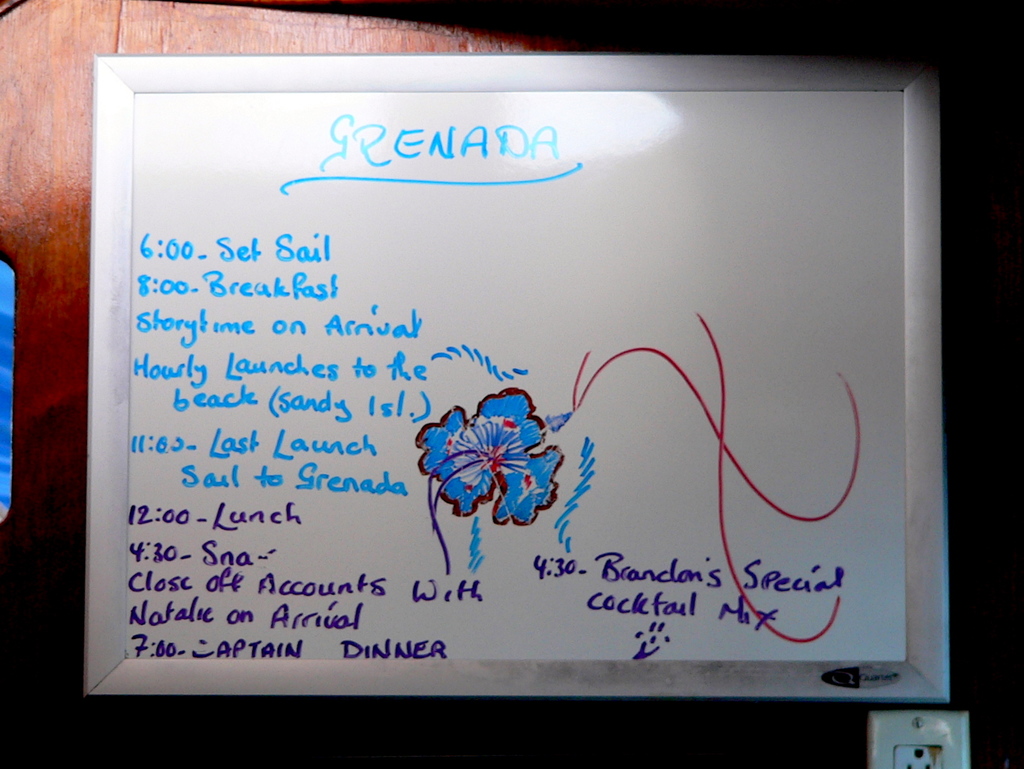 GRENADA
6:00- Set Sail
8:00- Breakfast
Storytime on Arrival
Hourly Launches to the
beach (Sandy Isl.)
11:00- Last Launch
Sail to Grenada
12:00- Lunch
4:30- Sna
Close off Accounts With
Natalie on Arrival
7:00- CAPTAIN DINNER
4:30- Brandon's Special
Cocktail Mix
Quartet